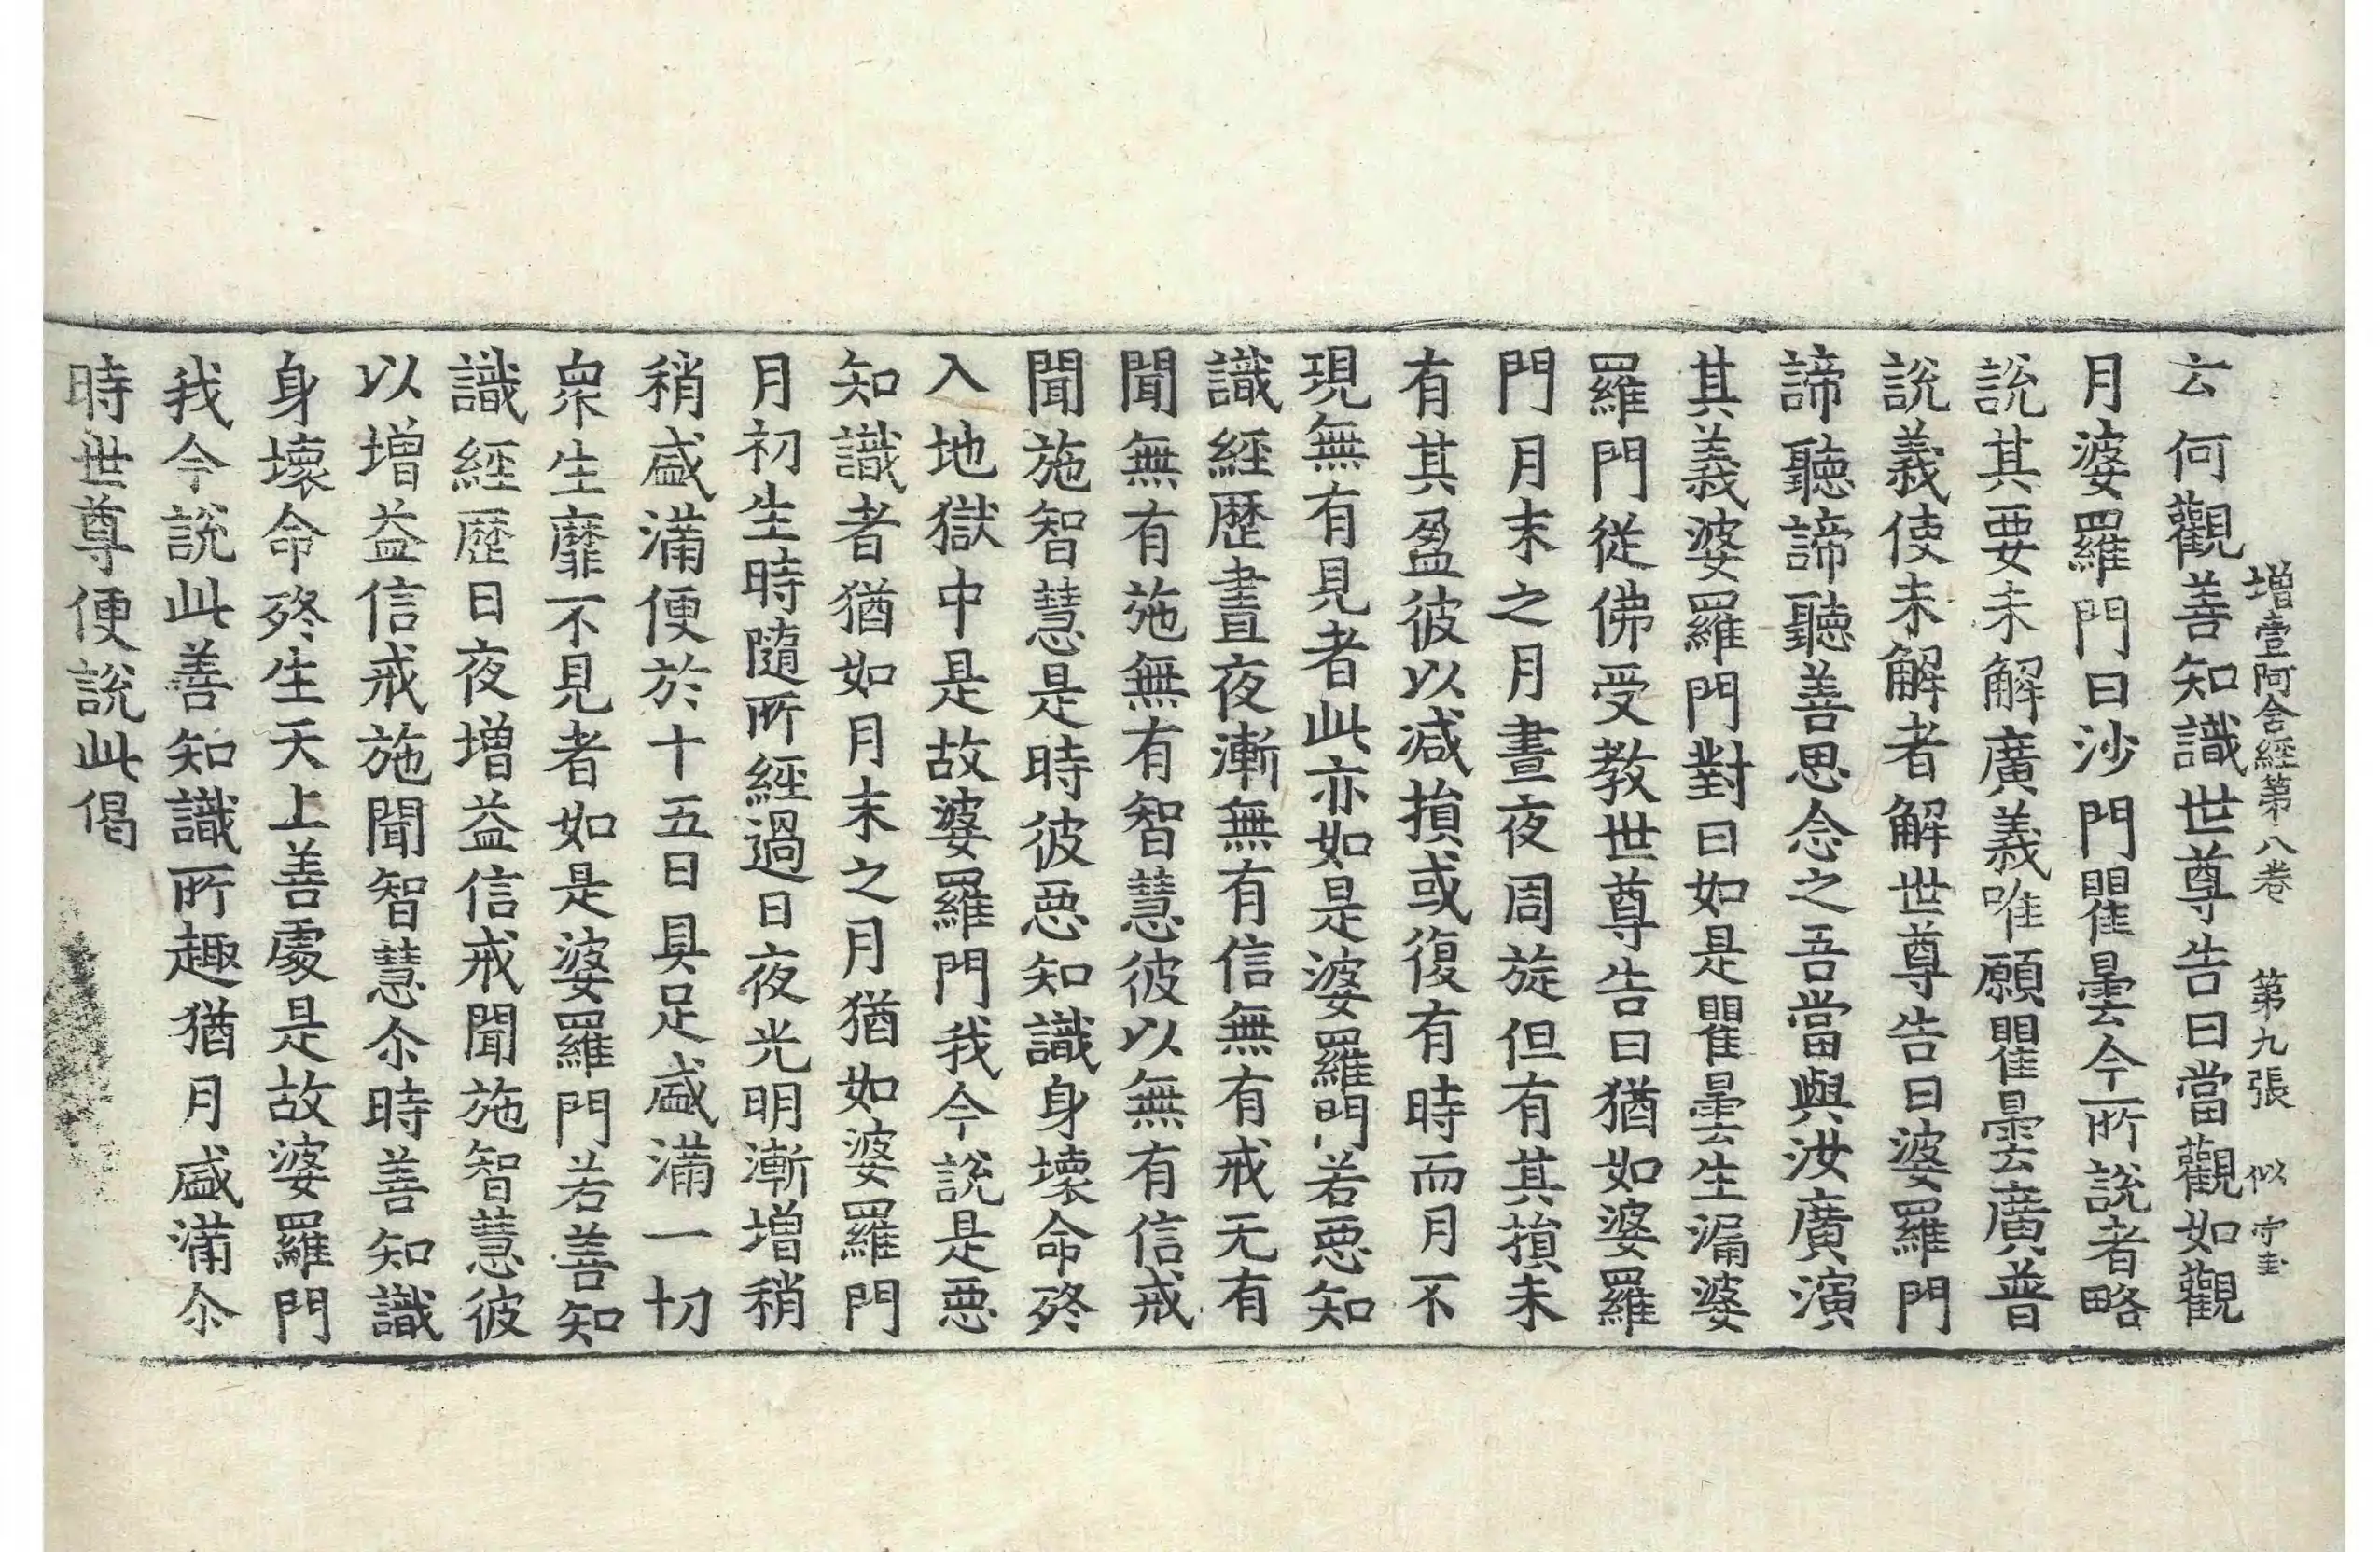 增壹阿含經第八卷　第九張　似　守圭
云何觀善知識世尊告曰當觀如觀
月婆羅門曰沙門瞿曇今所說者略
說其要未解廣義唯願瞿曇廣普
說義使未解者解世尊告曰婆羅門
諦聽諦聽善思念之吾當與汝廣演
其義婆羅門對曰如是瞿曇生漏婆
羅門從佛受教世尊告曰猶如婆羅
門月末之月晝夜周旋但有其損未
有其盈彼以減損或復有時而月不
現無有見者此亦如是婆羅門若惡知
識經歷晝夜漸無有信無有戒无有
聞無有施無有智慧彼以無有信戒
聞施智慧是時彼惡知識身壞命終
入地獄中是故婆羅門我今說是惡
知識者猶如月末之月猶如婆羅門
月初生時隨所經過日夜光明漸增稍
稍盛滿便於十五日具足盛滿一切
眾生靡不見者如是婆羅門若善知
識經歷日夜增益信戒聞施智慧彼
以增益信戒施聞智慧尒時善知識
身壞命終生天上善處是故婆羅門
我今說此善知識所趣猶月盛滿尒
時世尊便說此偈